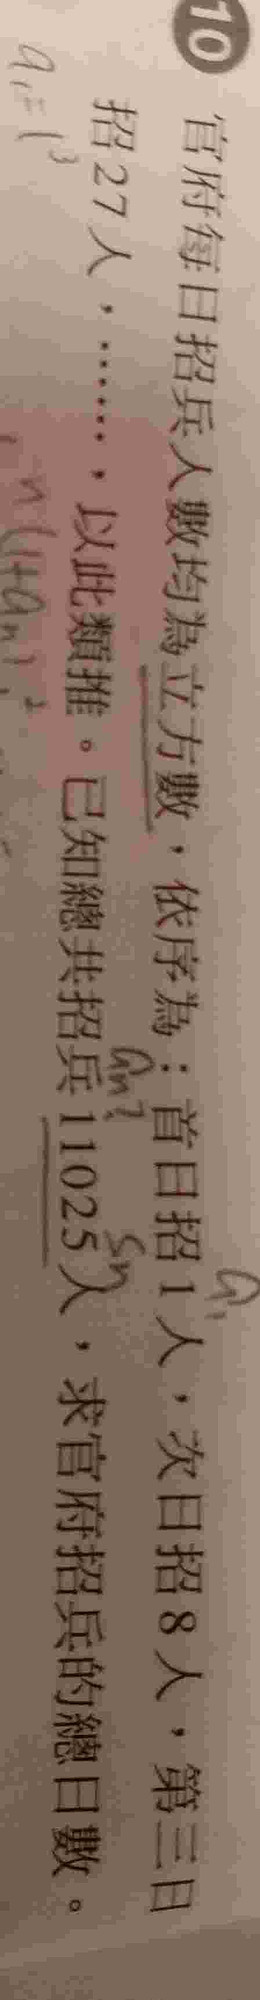 10 官府每日招兵人數均為立方數，依序為：首日招1人，次日招8人，第三日
招27人，……，以此類推。已知總共招兵11025人，求官府招兵的總日數。
a₁
an? Sn
a₁=1³
n(1+an)²